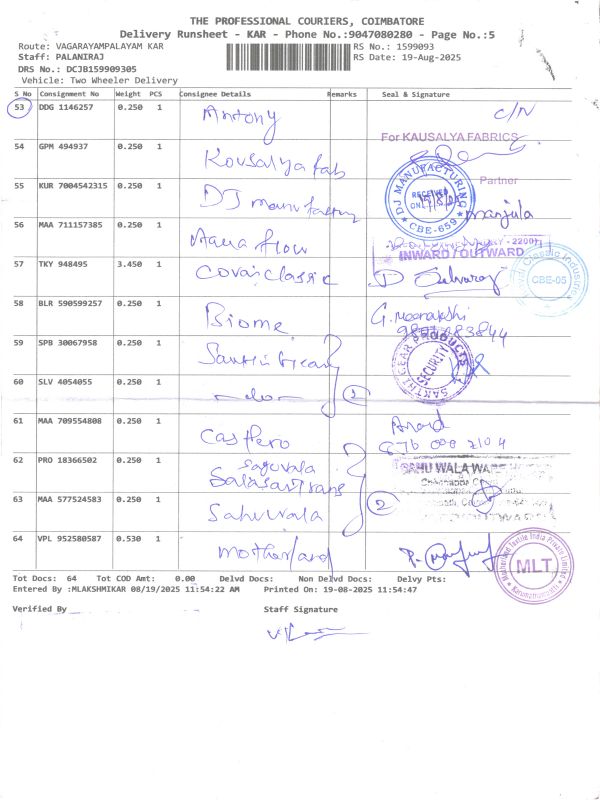 THE PROFESSIONAL COURIERS, COIMBATORE
Delivery Runsheet - KAR - Phone No.:9047080280 - Page No.:5
Route: VAGARAYAMPALAYAM KAR
RS No.: 1599093
Staff: PALANIRAJ
RS Date: 19-Aug-2025
DRS No.: DCJB159909305
Vehicle: Two Wheeler Delivery
S No Consignment No Weight PCS Consignee Details Remarks Seal & Signature
53 DDG 1146257 0.250 1 Antony C/N
For KAUSALYA FABRICS
54 GPM 494937 0.250 1 Kousalya fab
Partner
55 KUR 7004542315 0.250 1 DJ manufactury
DJ MANUFACTURING
RECEIVED
CBE-659
manjula
56 MAA 711157385 0.250 1 Aqua flow
INWARD / OUTWARD
57 TKY 948495 3.450 1 Covai classic
D Selvaraj
CBE-05
58 BLR 590599257 0.250 1 Biome
G. meenakshi
59 SPB 30067958 0.250 1 Sakthi Gear
SAKTHI GEAR PRODUCTS
SECURITY
60 SLV 4054055 0.250 1 -do- 2
61 MAA 709554808 0.250 1 Casfero
Anand
62 PRO 18366502 0.250 1
63 MAA 577524583 0.250 1 Sahuwala 2
64 VPL 952580587 0.530 1 Motherland
Motherland Textile India Private Limited
MLT
Tot Docs: 64 Tot COD Amt: 0.00 Delvd Docs: Non Delvd Docs: Delvy Pts:
Entered By :MLAKSHMIKAR 08/19/2025 11:54:22 AM Printed On: 19-08-2025 11:54:47
Verified By Staff Signature